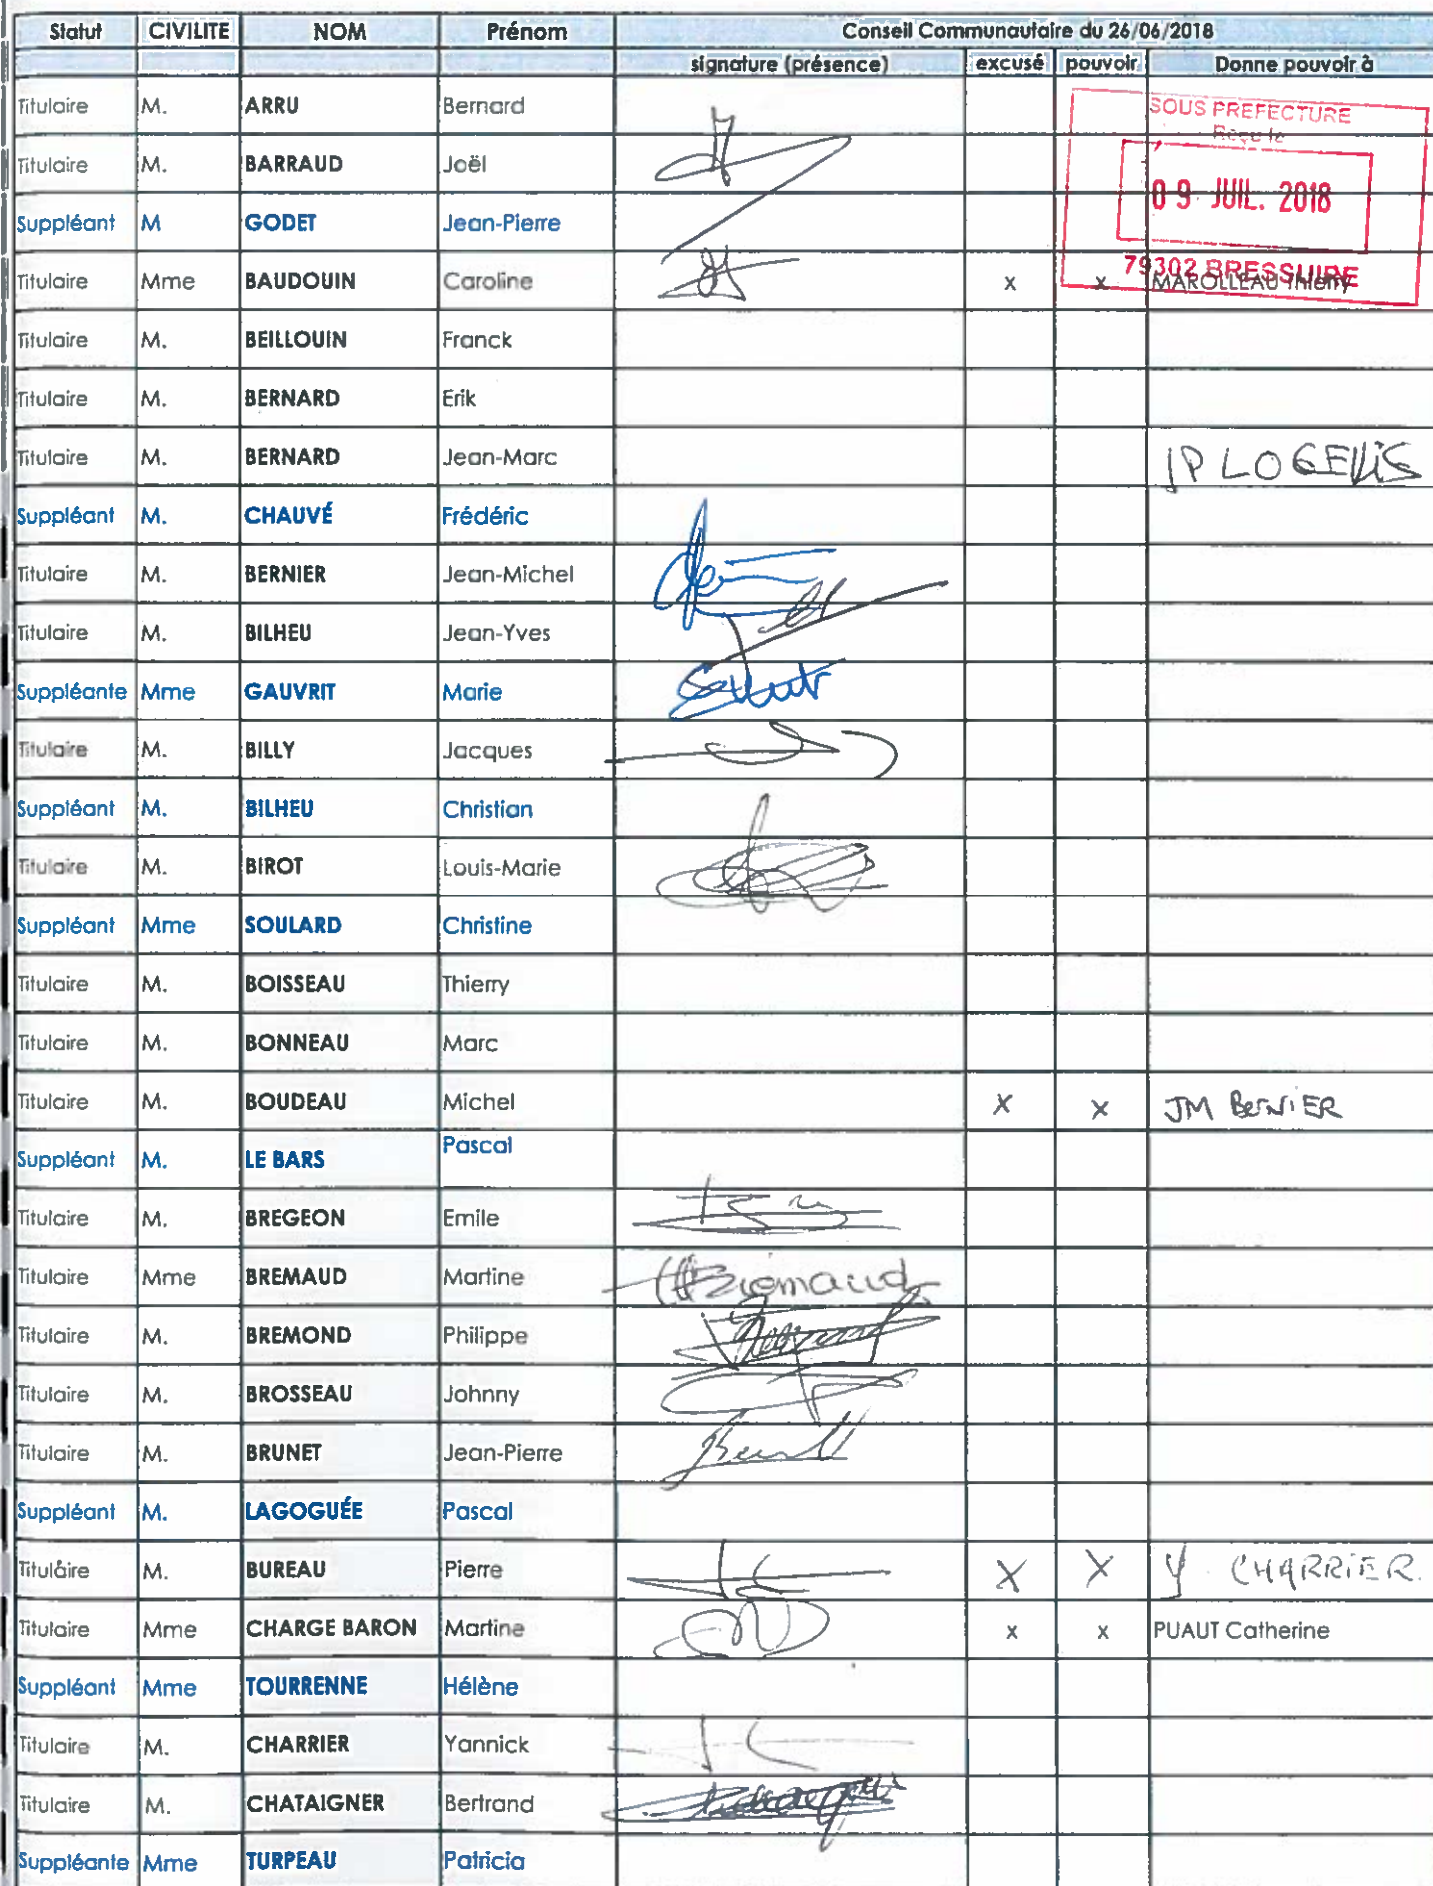 Statut CIVILITE NOM Prénom Conseil Communautaire du 26/06/2018
signature (présence) excusé pouvoir Donne pouvoir à
Titulaire M. ARRU Bernard
SOUS PREFECTURE
Reçu le
Titulaire M. BARRAUD Joël
09 JUIL. 2018
Suppléant M GODET Jean-Pierre
79302 BRESSUIRE
Titulaire Mme BAUDOUIN Caroline x x MAROLLEAU Thierry
Titulaire M. BEILLOUIN Franck
Titulaire M. BERNARD Erik
Titulaire M. BERNARD Jean-Marc JP LOGEAIS
Suppléant M. CHAUVÉ Frédéric
Titulaire M. BERNIER Jean-Michel
Titulaire M. BILHEU Jean-Yves
Suppléante Mme GAUVRIT Marie
Titulaire M. BILLY Jacques
Suppléant M. BILHEU Christian
Titulaire M. BIROT Louis-Marie
Suppléant Mme SOULARD Christine
Titulaire M. BOISSEAU Thierry
Titulaire M. BONNEAU Marc
Titulaire M. BOUDEAU Michel X X JM BERNIER
Suppléant M. LE BARS Pascal
Titulaire M. BREGEON Emile
Titulaire Mme BREMAUD Martine Bremaud
Titulaire M. BREMOND Philippe
Titulaire M. BROSSEAU Johnny
Titulaire M. BRUNET Jean-Pierre
Suppléant M. LAGOGUÉE Pascal
Titulaire M. BUREAU Pierre X X Y CHARRIER.
Titulaire Mme CHARGE BARON Martine x x PUAUT Catherine
Suppléant Mme TOURRENNE Hélène
Titulaire M. CHARRIER Yannick
Titulaire M. CHATAIGNER Bertrand
Suppléante Mme TURPEAU Patricia